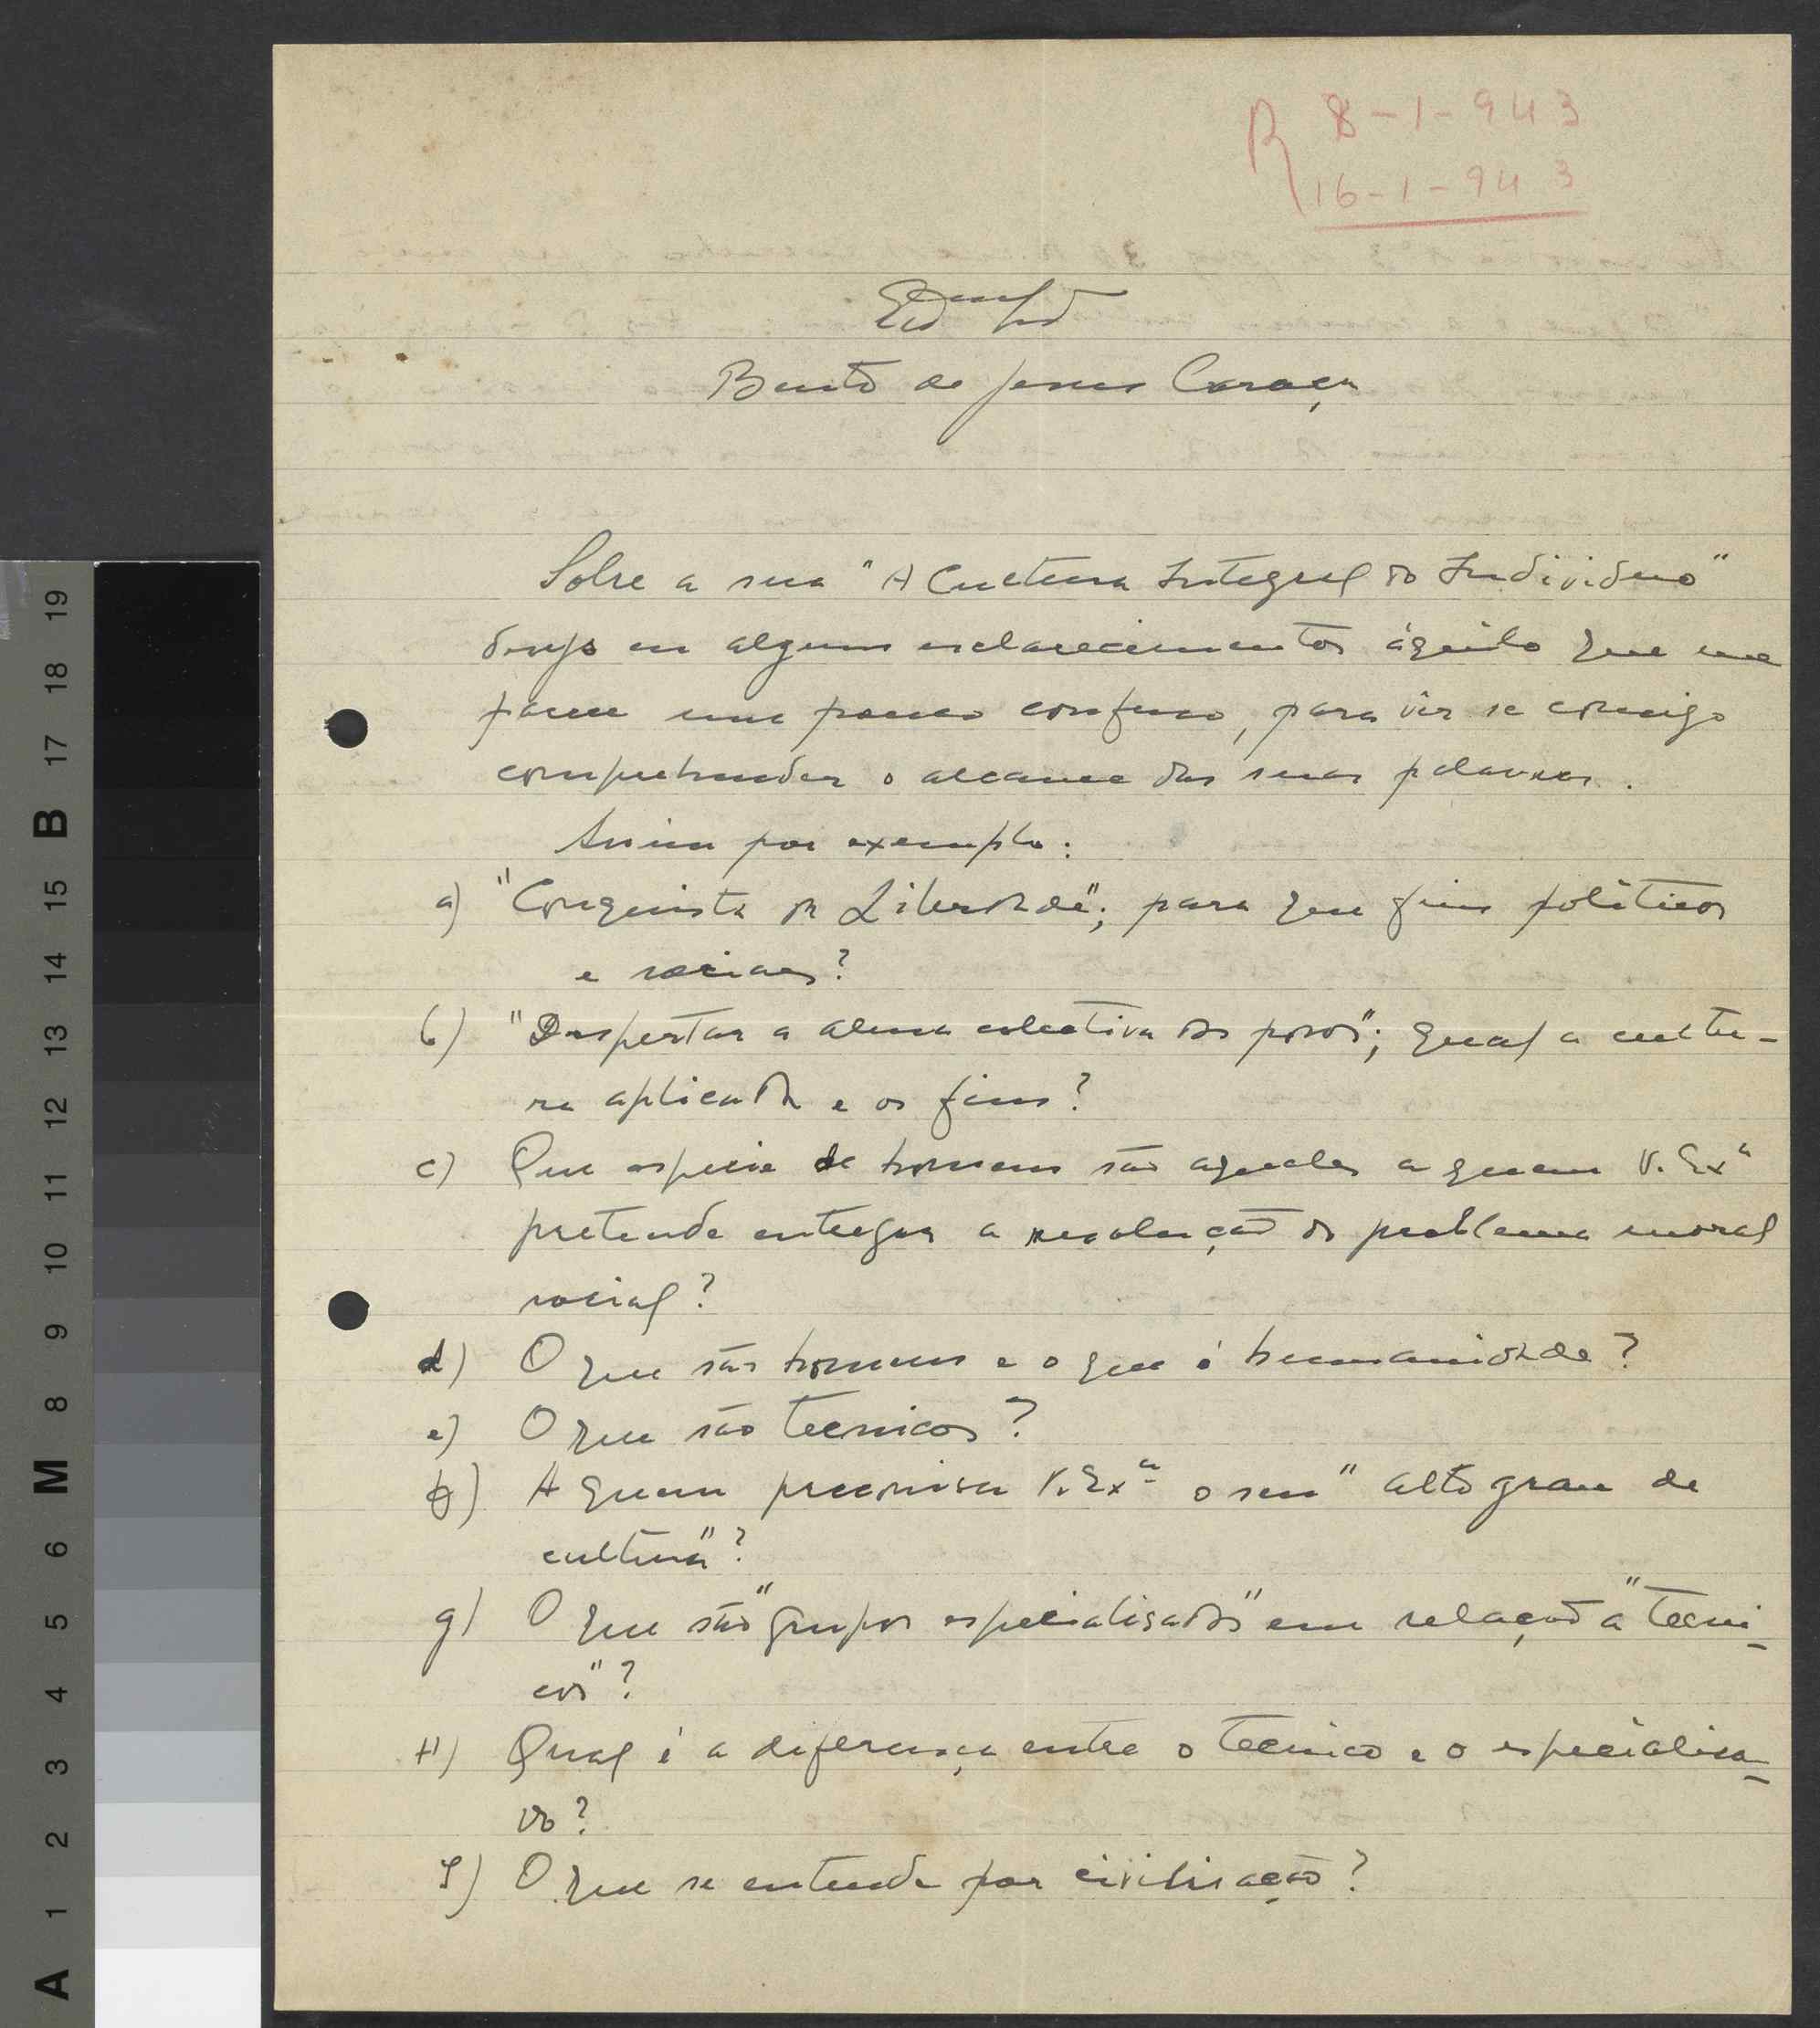 R 8-1-943
16-1-943
Bento de Jesus Caraça
Sobre a sua "A Cultura Integral do Individuo"
desejo eu alguns esclarecimentos áquilo que me
parece um pouco confuso, para vêr se consigo
comprehender o alcance das suas palavras.
Assim por exemplo:
a) "Conquista da Liberdade"; para que fins politicos
e sociaes?
b) "Despertar a alma colectiva dos povos"; qual a cultu-
ra aplicada e os fins?
c) Que especie de homens são aqueles a quem V. Exª
pretende entregar a resolução do problema moral
social?
d) O que são homens e o que é humanidade?
e) O que são tecnicos?
f) A quem preconisa V. Exª o seu "alto grau de
cultura"?
g) O que são "grupos especialisados" em relação a "tecni-
cos"?
H) Qual é a diferença entre o tecnico e o especialisa-
do?
I) O que se entende por civilisação?
A 1 2 3 4 5 6 M 8 9 10 11 12 13 14 15 B 17 18 19